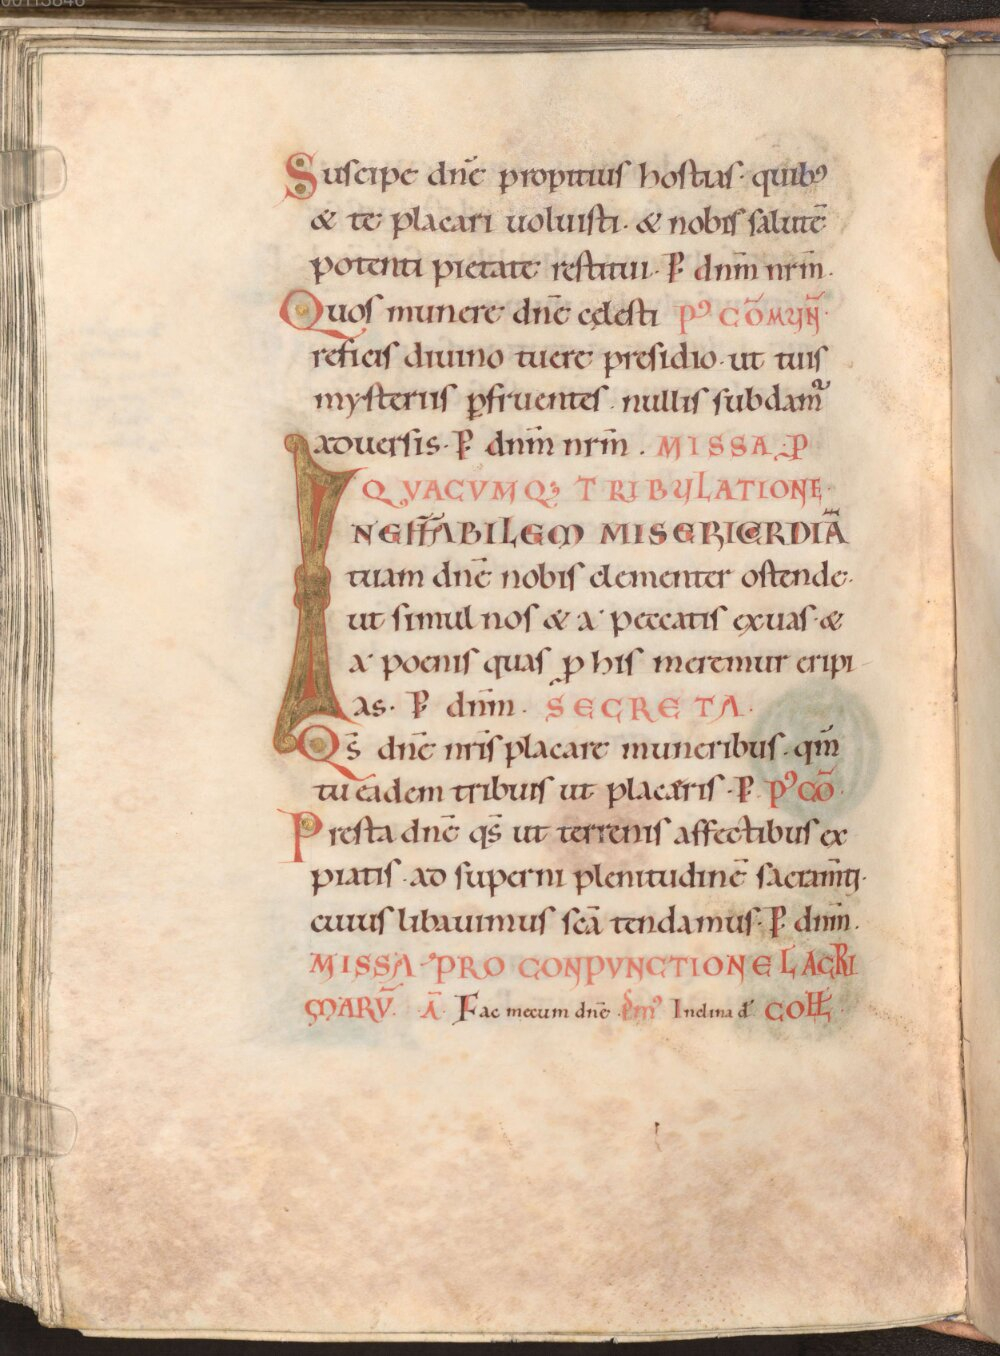 Suscipe dn̄e propitius hostias· quibꝰ
& te placari uoluisti· & nobis̄ salutē
potenti pietate restitui· P̶ dnm̄ nrm̄.
Quos munere dn̄e cęlesti pꝰ COMUN̄·
reficis diuino tuere presidio· ut tuis
mysteriis ꝑfruentes· nullis subdam̄
aduersis· P̶ dnm̄ nrm̄. MISSA P
QUACUMQꝫ TRIBULATIONE·
INEFFABILEM MISERICORDIĀ
tuam dn̄e nobis clementer ostende·
ut simul nos & a peccatis exuas· &
a poenis quas ꝓ his meremur eripi-
as. P̶ dnm̄. SECRETA.
Qs̄ dn̄e nr̄is placare muneribus· qm̄
tu eadem tribuis ut placeris· P̶ pꝰ CŌ·
Presta dn̄e qs̄ ut terrenis affectibus ex
piatis· ad superni plenitudinē sacram̄ti·
cuius libauimus scā tendamus· P̶ dnm̄.
MISSA PRO CONPUNCTIONE LACRI
MARŪ. Ā. Fac mecum dn̄e. psm̄ꝰ Inclina d̄ COLL̄